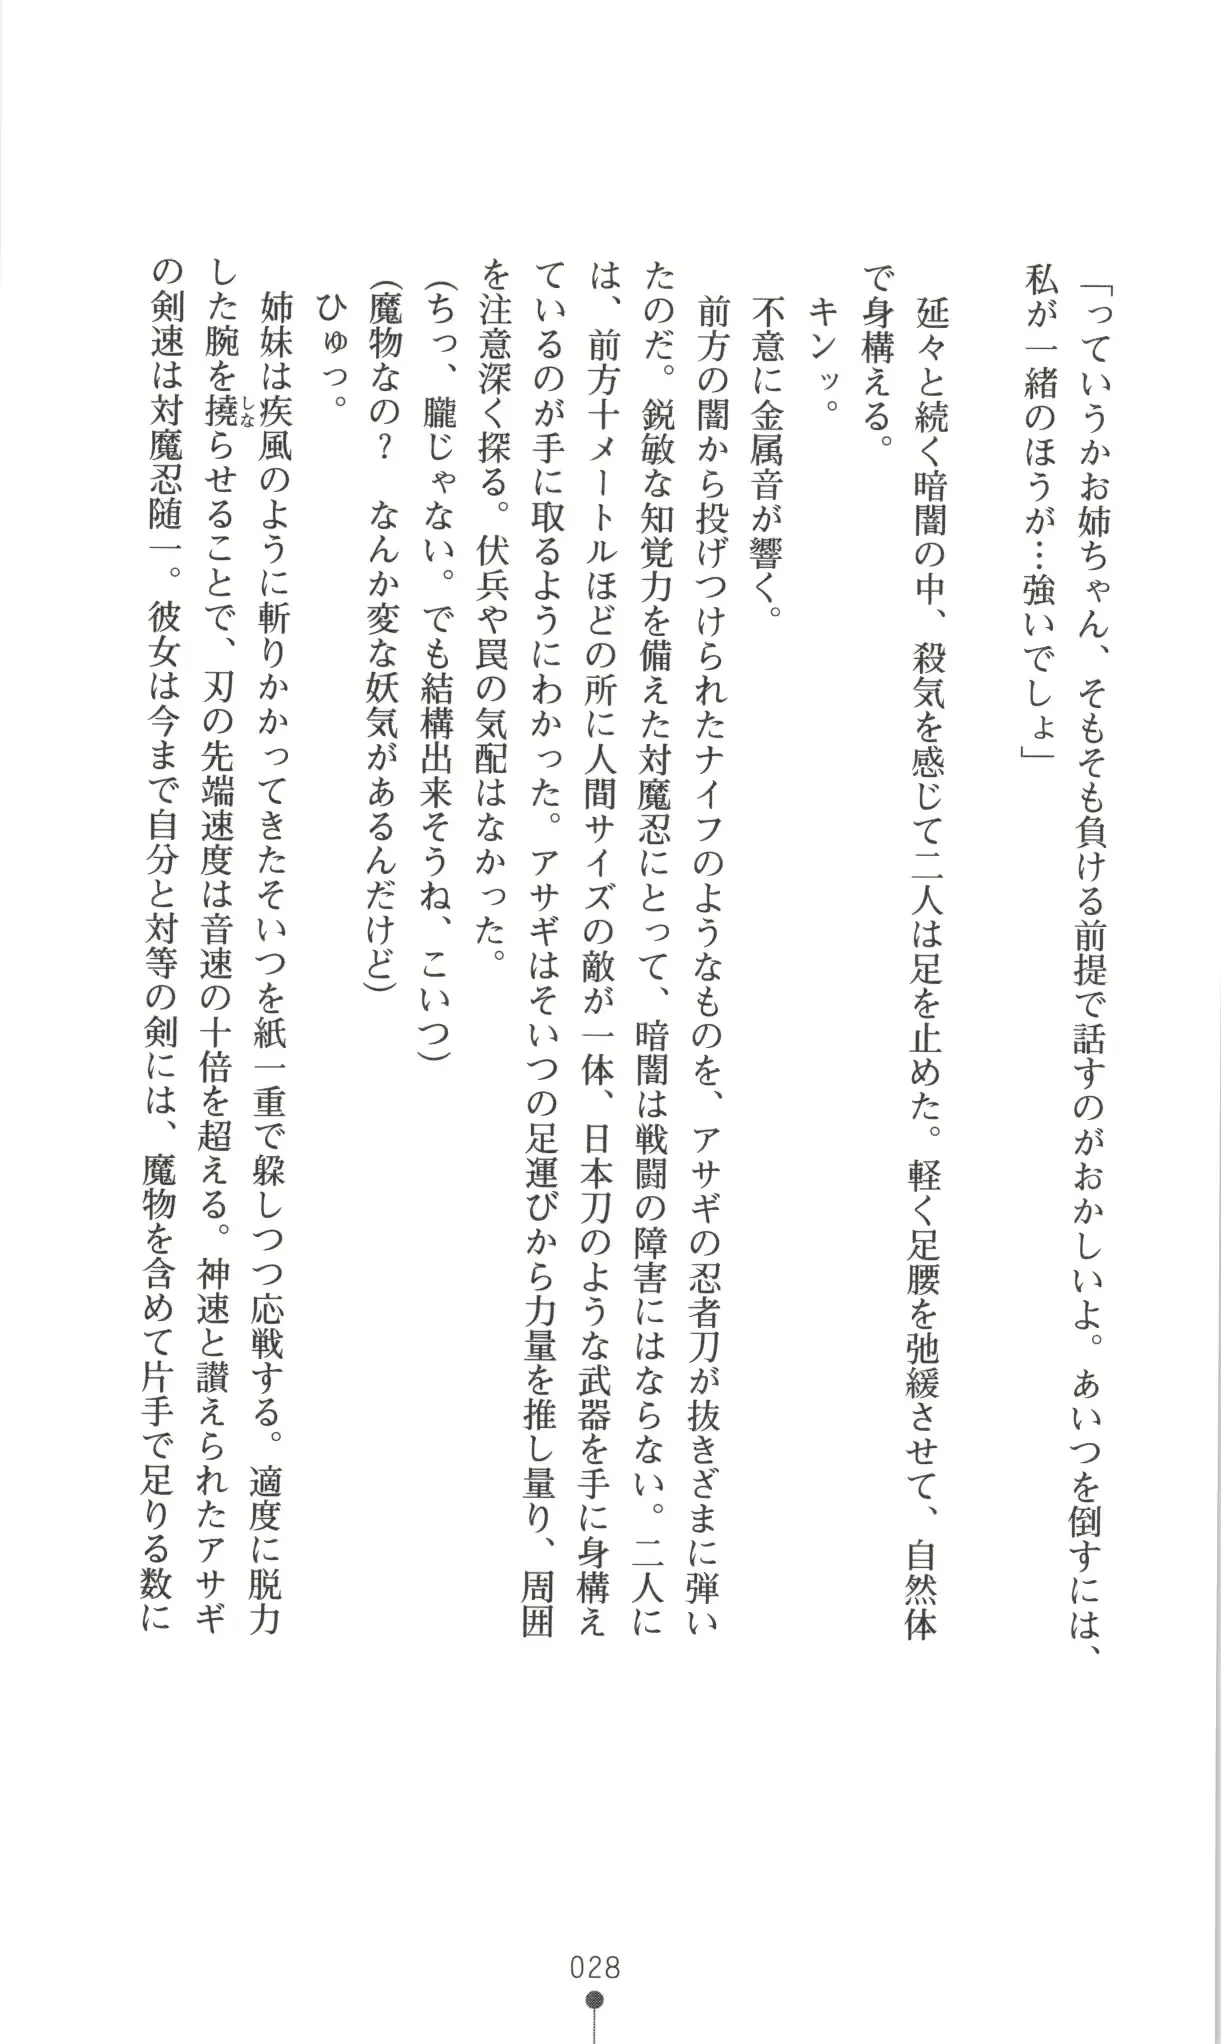 「っていうかお姉ちゃん、そもそも負ける前提で話すのがおかしいよ。あいつを倒すには、
私が一緒のほうが…強いでしょ」
延々と続く暗闇の中、殺気を感じて二人は足を止めた。軽く足腰を弛緩させて、自然体
で身構える。
キンッ。
不意に金属音が響く。
前方の闇から投げつけられたナイフのようなものを、アサギの忍者刀が抜きざまに弾い
たのだ。鋭敏な知覚力を備えた対魔忍にとって、暗闇は戦闘の障害にはならない。二人に
は、前方十メートルほどの所に人間サイズの敵が一体、日本刀のような武器を手に身構え
ているのが手に取るようにわかった。アサギはそいつの足運びから力量を推し量り、周囲
を注意深く探る。伏兵や罠の気配はなかった。
(ちっ、朧じゃない。でも結構出来そうね、こいつ)
(魔物なの？　なんか変な妖気があるんだけど)
ひゅっ。
姉妹は疾風のように斬りかかってきたそいつを紙一重で躱しつつ応戦する。適度に脱力
した腕を撓らせることで、刃の先端速度は音速の十倍を超える。神速と讃えられたアサギ
の剣速は対魔忍随一。彼女は今まで自分と対等の剣には、魔物を含めて片手で足りる数に
しな
028